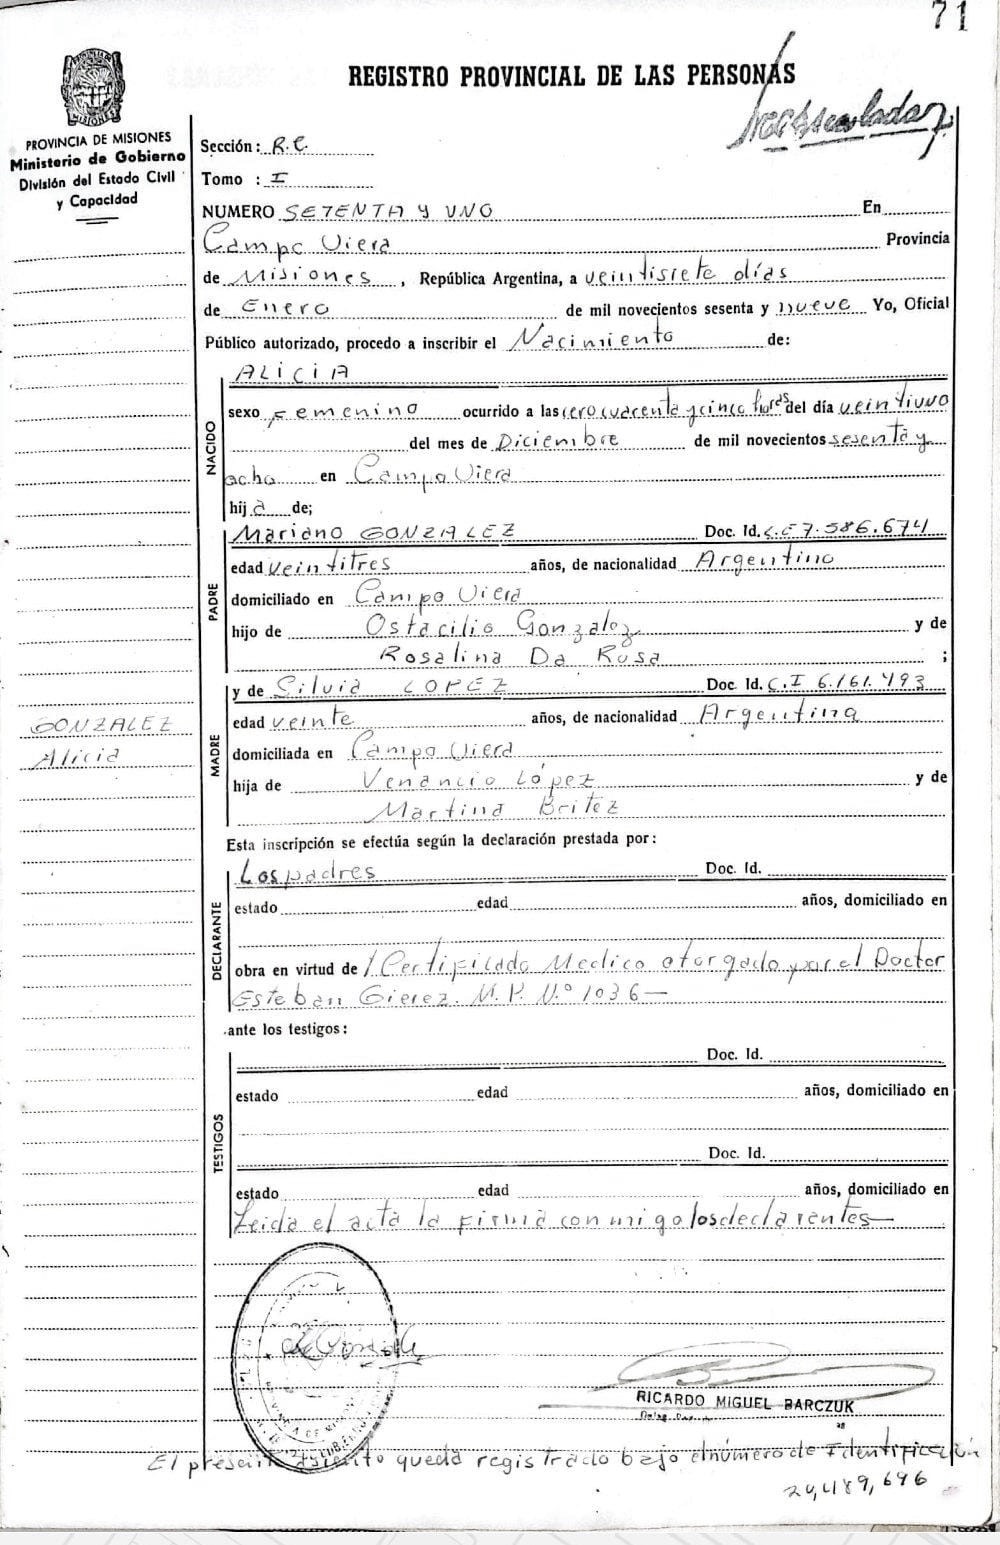 71
REGISTRO PROVINCIAL DE LAS PERSONAS
PROVINCIA DE MISIONES
Ministerio de Gobierno
División del Estado Civil
y Capacidad
Sección: R.C.
Tomo : I
NUMERO SETENTA Y UNO En
Campo Viera Provincia
de Misiones, República Argentina, a veintisiete días
de Enero de mil novecientos sesenta y nueve Yo, Oficial
Público autorizado, procedo a inscribir el Nacimiento de:
NACIDO
ALICIA
sexo Femenino ocurrido a las cero cuarenta y cinco horas del día veintiuno
del mes de Diciembre de mil novecientos sesenta y
ocho en Campo Viera
hija de;
PADRE
Mariano GONZALEZ Doc. Id. C.E 7.586.674
edad veintitres años, de nacionalidad Argentino
domiciliado en Campo Viera
hijo de Ostacilio Gonzalez y de
Rosalina Da Rosa ;
MADRE
y de Silvia LOPEZ Doc. Id. C.I 6.161.493
edad veinte años, de nacionalidad Argentina
domiciliada en Campo Viera
hija de Venancio López y de
Martina Britez
GONZALEZ
Alicia
Esta inscripción se efectúa según la declaración prestada por:
DECLARANTE
Los padres Doc. Id.
estado edad años, domiciliado en
obra en virtud de 1 Certificado Medico otorgado por el Doctor
Esteban Gierez. M.P. N.º 1036—
ante los testigos:
TESTIGOS
Doc. Id.
estado edad años, domiciliado en
Doc. Id.
estado edad años, domiciliado en
Leida el acta la firma conmigo los declarantes—
RICARDO MIGUEL BARCZUK
El presente asiento queda registrado bajo el número de Identificación
20,489,696